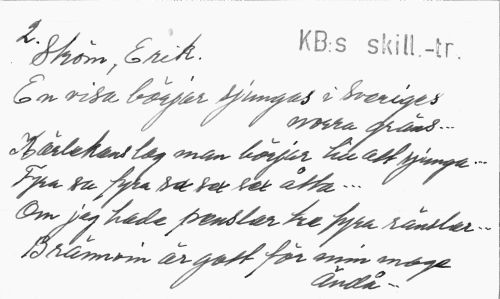 2.
KB:s skill.-tr.
Ström, Erik.
En visa börjar sjungas i Sveriges
norra gräns...
Kärlekens lag man börjar att sjunga...
Fyra sa fyra sex sex sex åtta...
Om jag hade penslar tre fyra ränslar...
Brännvin är gott för min mage
Ändå...